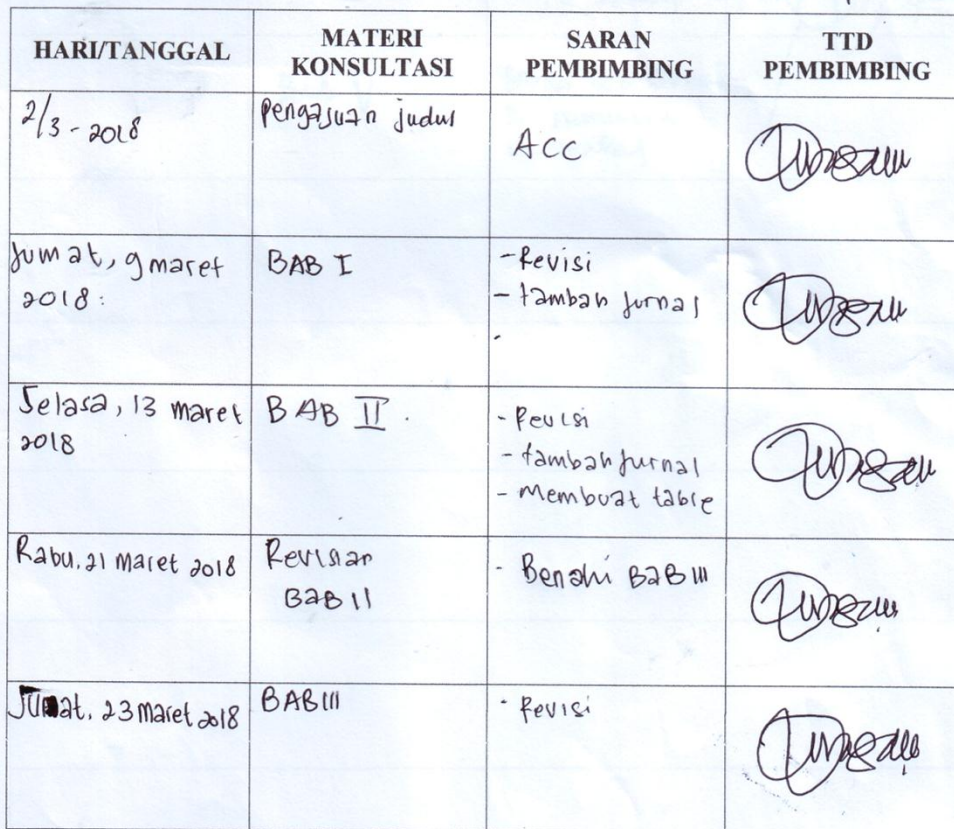 HARI/TANGGAL
MATERI
KONSULTASI
SARAN
PEMBIMBING
TTD
PEMBIMBING
2/3 - 2018
Pengajuan judul
ACC
Jumat, 9 maret
2018:
BAB I
- Revisi
- tambah Jurnal
Selasa, 13 maret
2018
BAB II.
- Revisi
- tambah Jurnal
- Membuat table
Rabu, 21 maret 2018
Revisian
BAB II
- Benahi BAB III
Jumat, 23 Maret 2018
BAB III
- Revisi